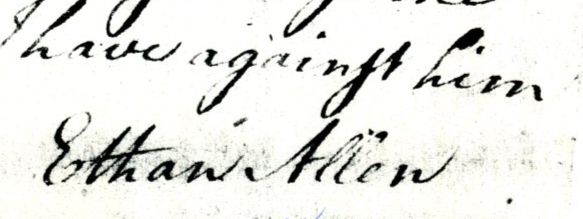 I have against him
Ethan Allen